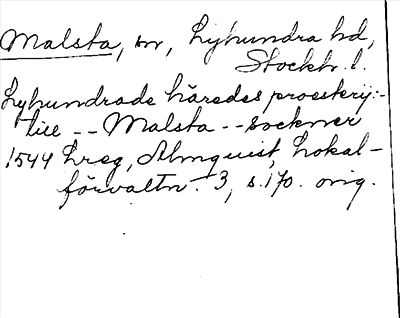 Malsta, sn, Lyhundra hd,
Stockh. l.
Lyhundrade häredes proesterij:-
till -- Malsta -- sockner
1544 Lreg, Almquist, Lokal-
förvaltn. 3, s. 170. orig.